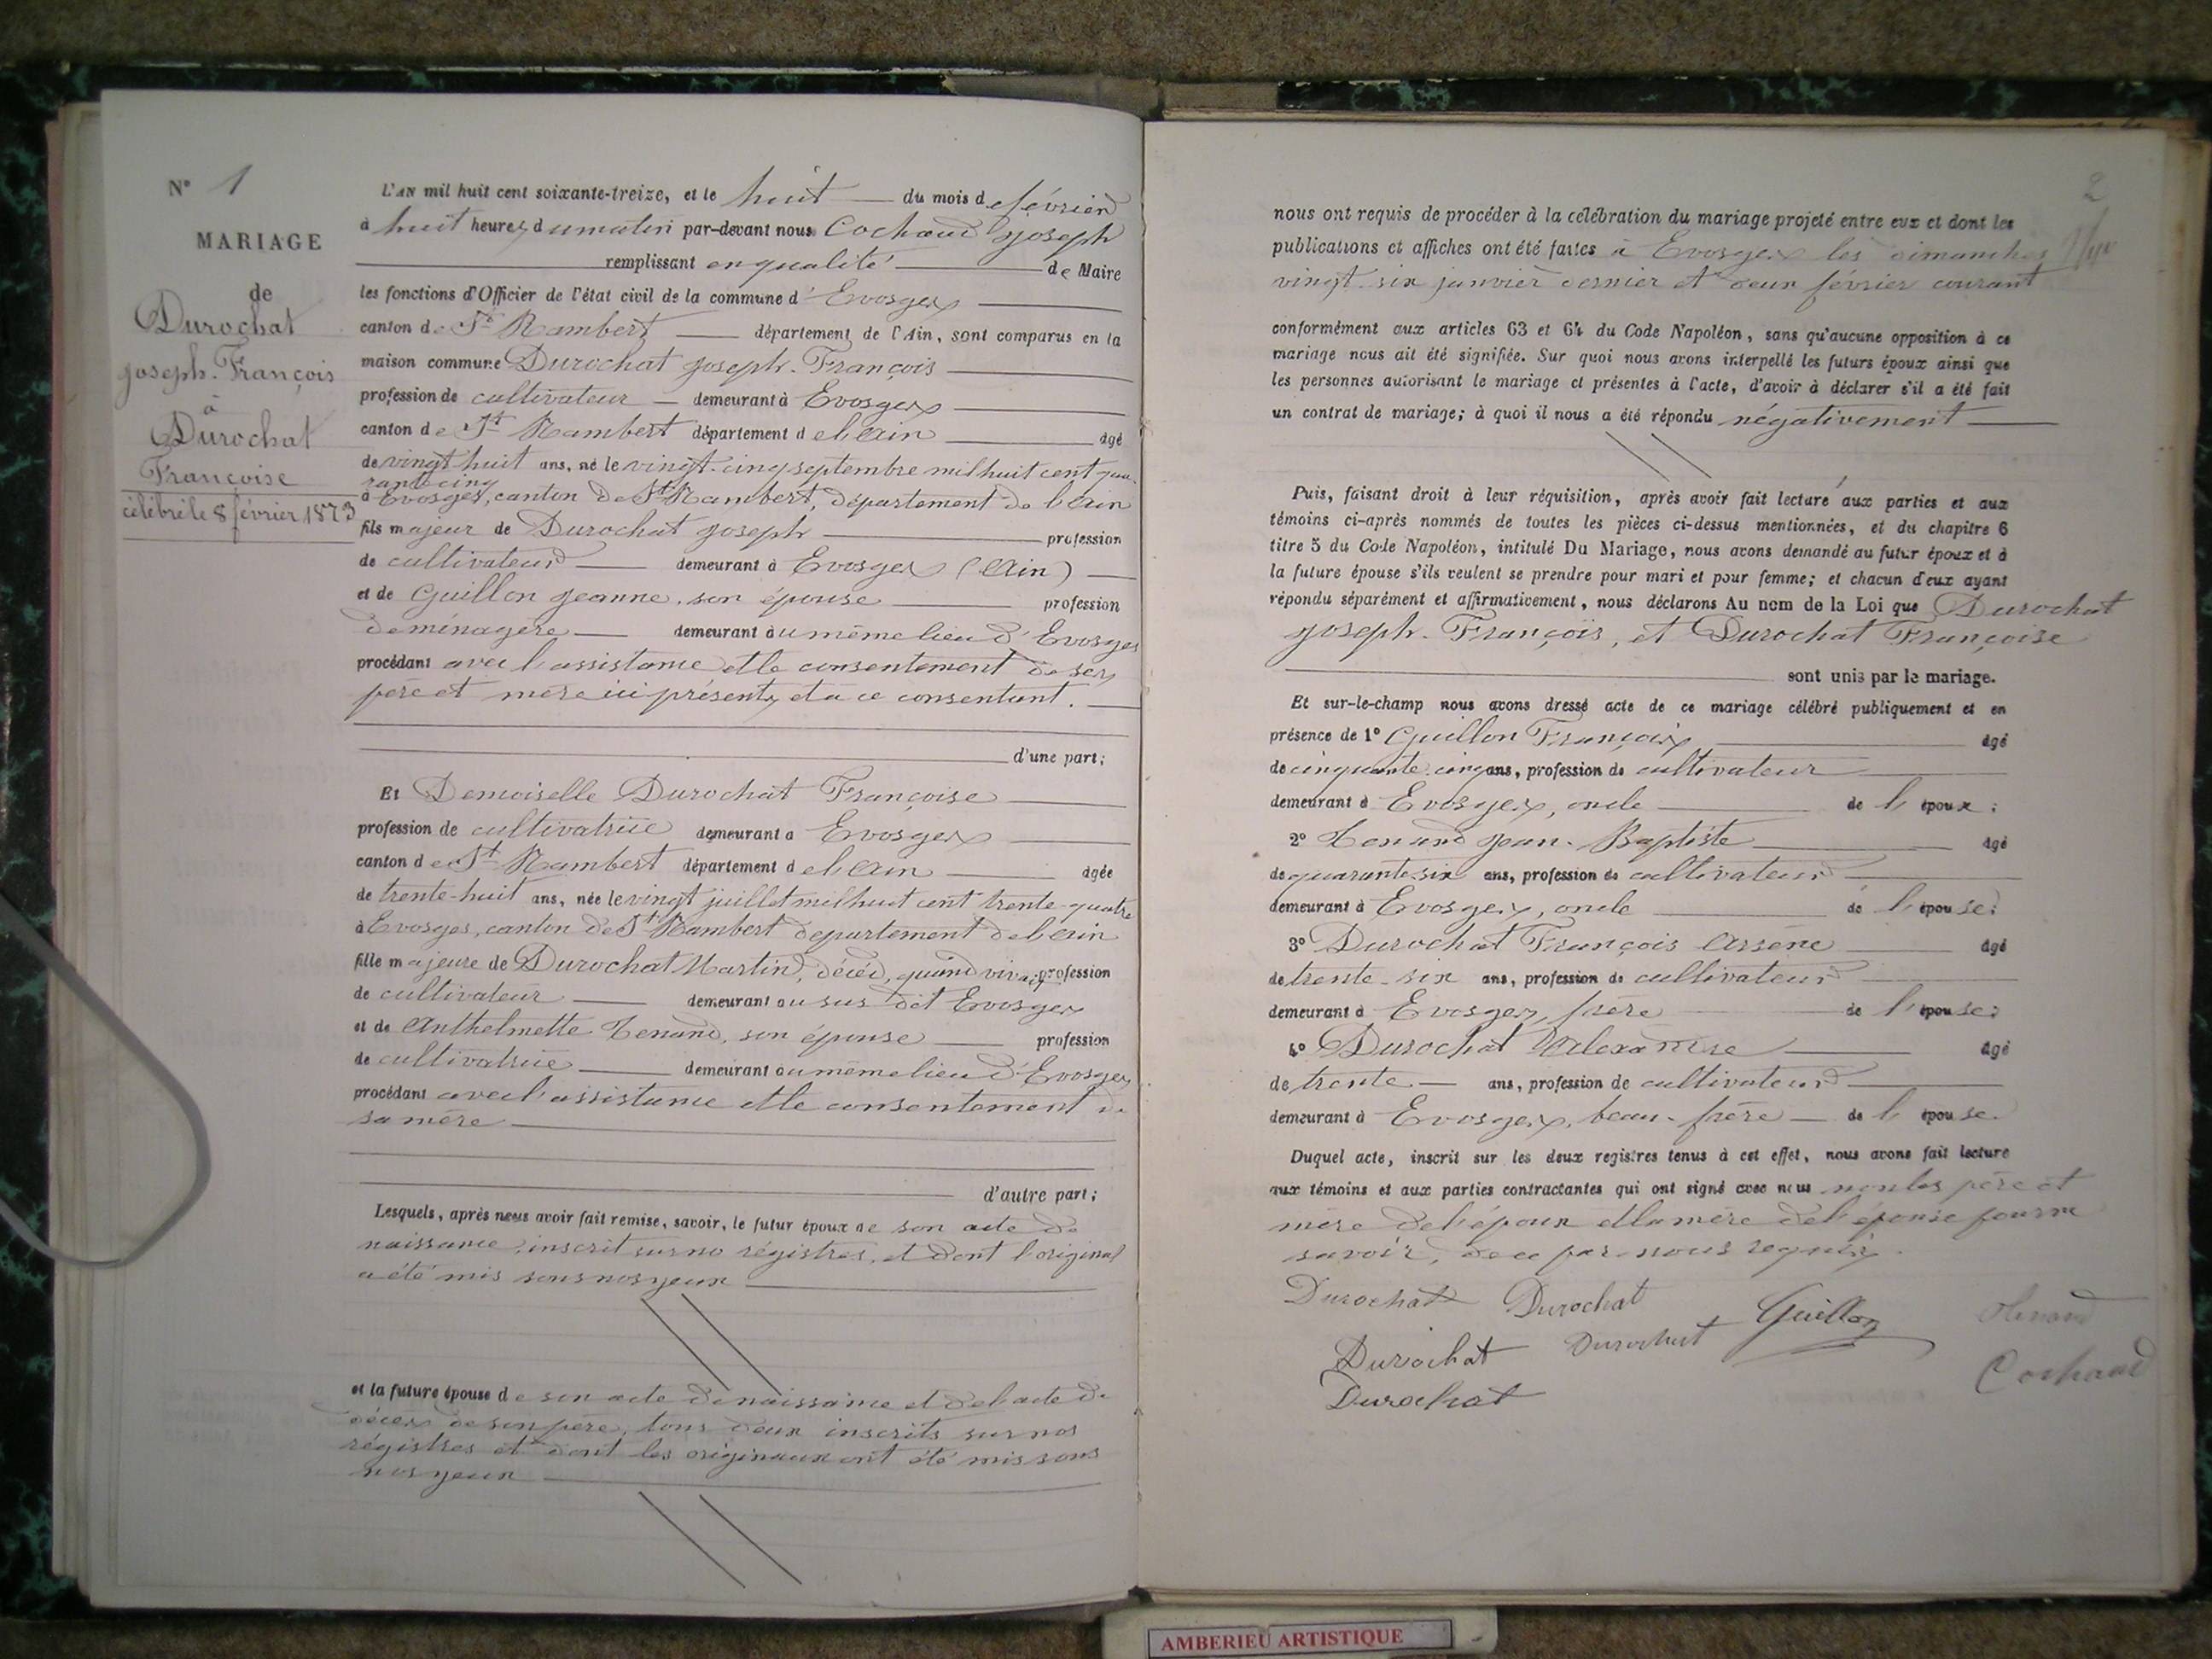 N° 1
MARIAGE
de
Durochat
joseph-François
à
Durochat
Françoise
célébré le 8 février 1873
L'AN mil huit cent soixante-treize, et le huit du mois de février
à huit heures du matin par-devant nous Cochaud joseph
remplissant en qualité de Maire
les fonctions d'Officier de l'état civil de la commune d'Evosges
canton de St Rambert département de l'Ain, sont comparus en la
maison commune Durochat joseph-François
profession de cultivateur demeurant à Evosges
canton de St Rambert département de l'ain âgé
de vingt huit ans, né le vingt-cinq septembre mil huit cent qua-
rante cinq
à Evosges, canton de St Rambert, département de l'ain
fils majeur de Durochat joseph profession
de cultivateur demeurant à Evosges (Ain)
et de Guillon jeanne, son épouse profession
de ménagère demeurant au même lieu d'Evosges
procédant avec l'assistance et le consentement de ses
père et mère ici présents et a ce consentant.
d'une part;
Et Demoiselle Durochat Françoise
profession de cultivatrice demeurant a Evosges
canton de St Rambert département de l'ain âgée
de trente-huit ans, née le vingt juillet mil huit cent trente-quatre
à Evosges, canton de St Rambert département de l'ain
fille majeure de Durochat Martin, décéd, quand vivait profession
de cultivateur demeurant au sus dit Evosges
et de Anthelmette Tenand, son épouse profession
de cultivatrice demeurant au même lieu d'Evosges
procédant avec l'assistance et le consentement de
sa mère
d'autre part;
Lesquels, après nous avoir fait remise, savoir, le futur époux de son acte de
naissance, inscrit sur no régistres, et dont l'original
a été mis sous nos yeux
et la future épouse de son acte de naissance et de l'acte de
décès de son père, tous deux inscrits sur nos
régistres et dont les originaux ont été mis sous
nos yeux
2
nous ont requis de procéder à la célébration du mariage projeté entre eux et dont les
publications et affiches ont été faites à Evosges les dimanches
vingt-six janvier dernier et deux février courant
conformément aux articles 63 et 64 du Code Napoléon, sans qu'aucune opposition à ce
mariage nous ait été signifiée. Sur quoi nous avons interpellé les futurs époux ainsi que
les personnes autorisant le mariage et présentes à l'acte, d'avoir à déclarer s'il a été fait
un contrat de mariage; à quoi il nous a été répondu négativement
Puis, faisant droit à leur réquisition, après avoir fait lecture aux parties et aux
témoins ci-après nommés de toutes les pièces ci-dessus mentionnées, et du chapitre 6
titre 5 du Code Napoléon, intitulé Du Mariage, nous avons demandé au futur époux et à
la future épouse s'ils veulent se prendre pour mari et pour femme; et chacun d'eux ayant
répondu séparément et affirmativement, nous déclarons Au nom de la Loi que Durochat
joseph-François, et Durochat Françoise
sont unis par le mariage.
Et sur-le-champ nous avons dressé acte de ce mariage célébré publiquement et en
présence de 1° Guillon François âgé
de cinquante cinq ans, profession de cultivateur
demeurant à Evosges, oncle de l'époux;
2° Tenand jean-Baptiste âgé
de quarante six ans, profession de cultivateur
demeurant à Evosges, oncle de l'épouse;
3° Durochat François Arsène âgé
de trente-six ans, profession de cultivateur
demeurant à Evosges, frère de l'épouse;
4° Durochat Alexandre âgé
de trente ans, profession de cultivateur
demeurant à Evosges, beau-frère de l'épouse.
Duquel acte, inscrit sur les deux registres tenus à cet effet, nous avons fait lecture
aux témoins et aux parties contractantes qui ont signé avec nous non les père et
mère de l'époux et la mère de l'épouse pour ne
savoir, de ce par nous requis.
Durochat Durochat Guillon
Durochat Durochat Cochaud
Durochat
AMBERIEU ARTISTIQUE